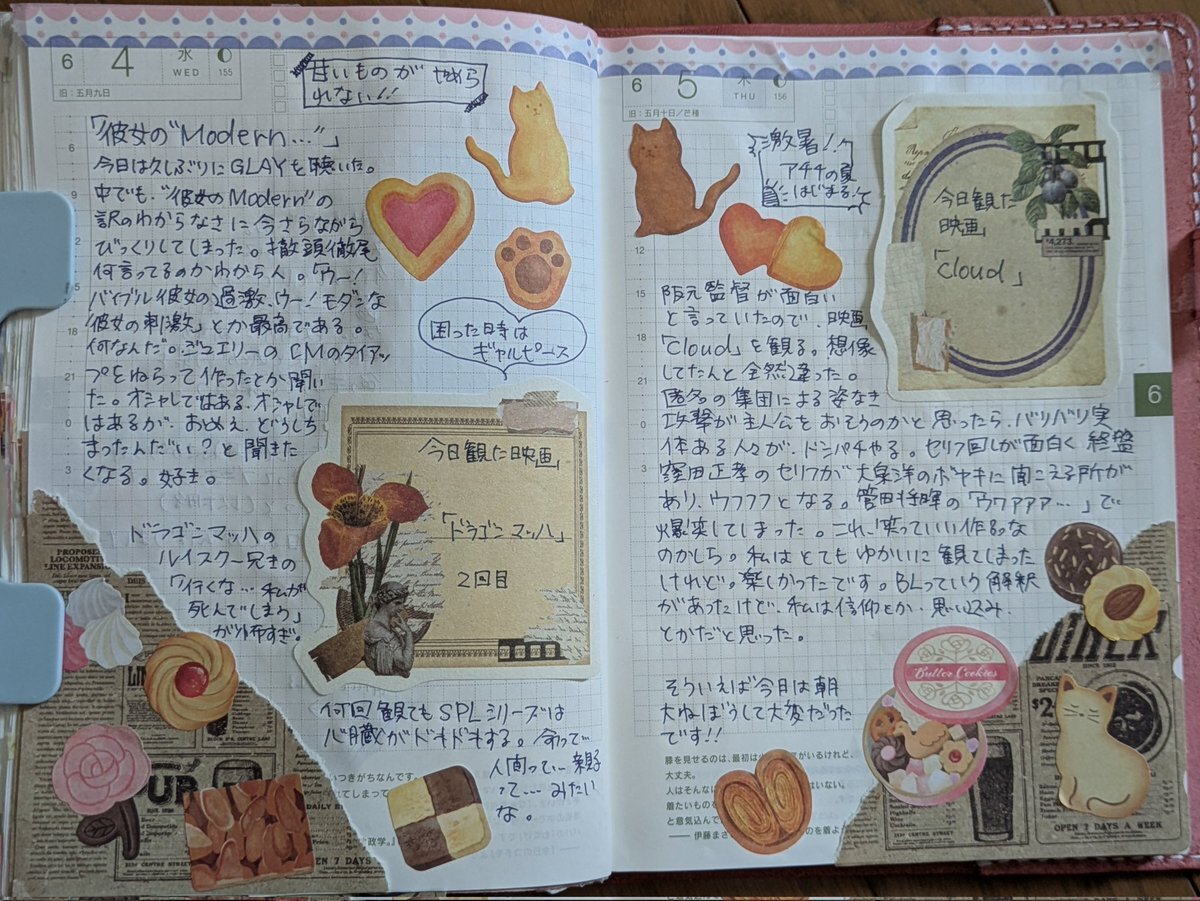 6 4 水 WED 155
旧：五月九日
甘いものが やめら
れない!!
「彼女の"Modern…"」
今日は久しぶりにGLAYを聴いた。
中でも、"彼女のModern"の
訳のわからなさに今さらながら
びっくりしてしまった。徹頭徹尾
何言ってるのかわからん。「ウー!
バイブル彼女の過激、ウー!モダンな
彼女の刺激」とか最高である。
何なんだ。ジュエリーのCMのタイアッ
プをねらって作ったとか聞い
た。オシャレではある、オシャレで
はあるが、おめえ、どうしち
まったんだい?と聞きた
くなる。好き。
困った時は
ギャルピース
今日観た映画」
「ドラゴンマッハ」
2回目
ドラゴンマッハの
ルイスクー兄きの
「行くな…私が
死んでしまう」
が怖すぎ。
何回観てもSPLシリーズは
心臓がドキドキする。命って…
人間って…親子
って…みたい
な。
PROPOSE
LOCOMOTIV
LINE EXPANSION
UP
OPEN 7 DAYS
いつきがちなんです。
れてしまって
政学。』
6 5 木 THU 156
旧：五月十日／芒種
激暑!
アチチの夏
はじまる。
今日観た
映画
「cloud」
$4,273.
阪元監督が面白い
と言っていたので、映画
「cloud」を観る。想像
してたんと全然違った。
匿名の集団による姿なき
攻撃が主人公をおそうのかと思ったら、バリバリ実
体ある人々が、ドンパチやる。セリフ回しが面白く、終盤
窪田正孝のセリフが大泉洋のボヤキに聞こえる所が
あり、ウフフフとなる。菅田将暉の「ウワァァァ…」で
爆笑してしまった。これ、笑っていい作品な
のかしら。私はとてもゆかいに観てしまった
けれど。楽しかったです。BLっていう解釈
があったけど、私は信仰とか、思い込み、
とかだと思った。
そういえば今日は朝
大ねぼうして大変だった
です!!
6
Butter Cookies
DINER
SINCE 1952
OPEN 7 DAYS A WEEK
膝を見せるのは、最初は
がいるけれど、
大丈夫。
人はそんなに
はいない。
着たいものを
と意気込んで
── 伊藤まさ